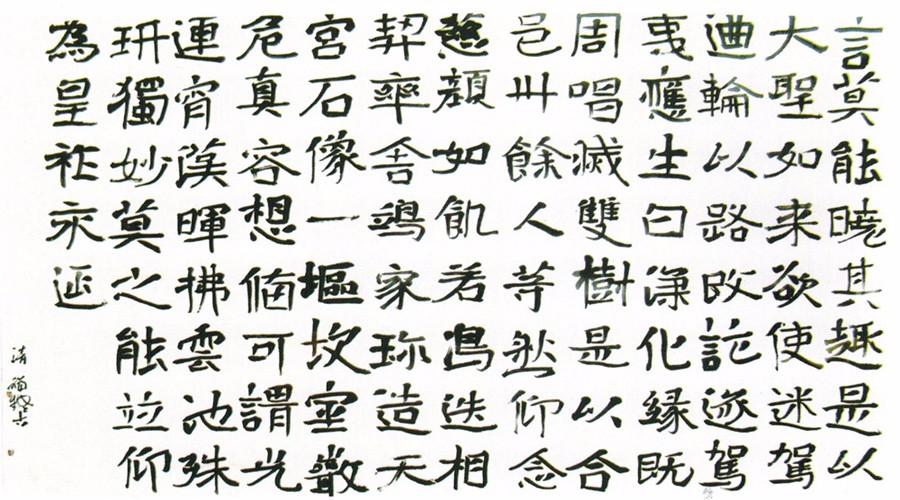 言莫能曉其趣是以
大聖如来欲使迷駕
輪以路改訑逐駕
夷應生曰化緣既
周唱滅雙樹是以合
邑卅餘人等然仰念
慈顔如飢若渴迭相
契率舎家珍造天
宮石像一塸坎室嚴
危真容想備可謂光
連宵漢暉拂雲池殊
獨妙莫之能竝仰
為皇祚永延
清